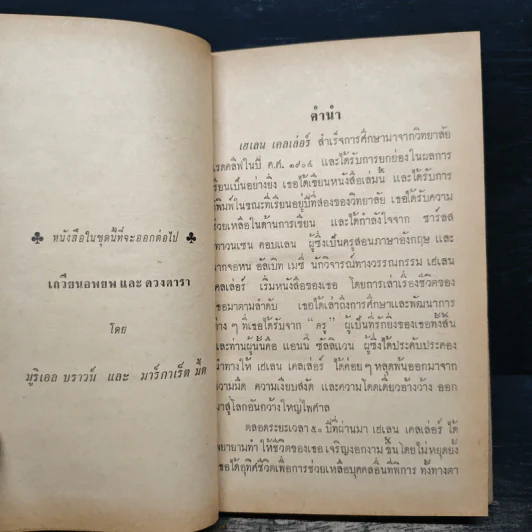 ♣ หนังสือในชุดนี้ที่จะออกต่อไป ♣
เกวียนอพยพ และ ดวงดารา
โดย
มูริเอล บราวน์ และ มาร์กาเร็ต มี้ด
คำนำ
เฮเลน เคลเล่อร์ สำเร็จการศึกษามาจากวิทยาลัย
แรดคลิฟในปี ค.ศ. ๑๙๐๔ และได้รับการยกย่องในผลการ
เรียนเป็นอย่างยิ่ง เธอได้เขียนหนังสือเล่มนี้ และได้รับการ
พิมพ์ในขณะที่เรียนอยู่ปีที่สองของวิทยาลัย เธอได้รับความ
ช่วยเหลือในด้านการเขียน และได้กำลังใจจาก ชาร์ลส
ทาวนเซน คอบแลน ผู้ซึ่งเป็นครูสอนภาษาอังกฤษ และ
จากจอหน อัลเบิท เมซี่ นักวิจารณ์ทางวรรณกรรม เฮเลน
เคลเล่อร์ เริ่มหนังสือของเธอ โดยการเล่าเรื่องชีวิตของ
เธอมาตามลำดับ เธอได้เล่าถึงการศึกษาและพัฒนาการ
ต่าง ๆ ที่เธอได้รับจาก “ครู” ผู้เป็นที่รักยิ่งของเธอทั้งสิ้น
และท่านผู้นั้นคือ แอนนี่ ซัลลิแวน ผู้ซึ่งได้ประคับประคอง
นำทางให้ เฮเลน เคลเล่อร์ ได้ค่อย ๆ หลุดพ้นออกมาจาก
ความมืด ความเงียบสงัด และความโดดเดี่ยวอ้างว้าง ออก
มาสู่โลกอันกว้างใหญ่ไพศาล
ตลอดระยะเวลา ๕๐ ปีที่ผ่านมา เฮเลน เคลเล่อร์ ได้
พยายามทำให้ชีวิตของเธอ เจริญงอกงามขึ้นโดยไม่หยุดยั้ง
เธอได้อุทิศชีวิตเพื่อการช่วยเหลือบุคคลอื่นที่พิการ ทั้งทางตา